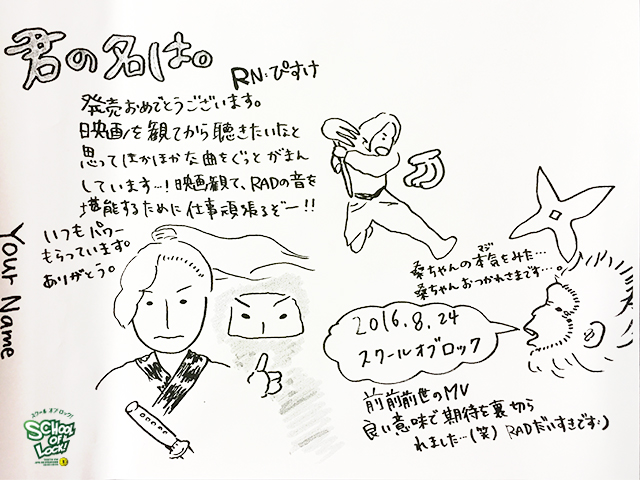 君の名は。
RN:ぴすけ
発売おめでとうございます。
映画を観てから聴きたいなと
思ってほかほかな曲をぐっとがまん
しています…!映画観て、RADの音を
堪能するために仕事頑張るぞー!!
いつもパワー
もらっています。
ありがとう。
桑ちゃんの本気をみた…
マジ
桑ちゃんおつかれさまです…。
2016.8.24
スクールオブロック
前前前世のMV
良い意味で期待を裏切ら
れました…(笑) RADだいすきです:)
Your Name
スクール オブ ロック!
SCHOOL
OF
LOCK!